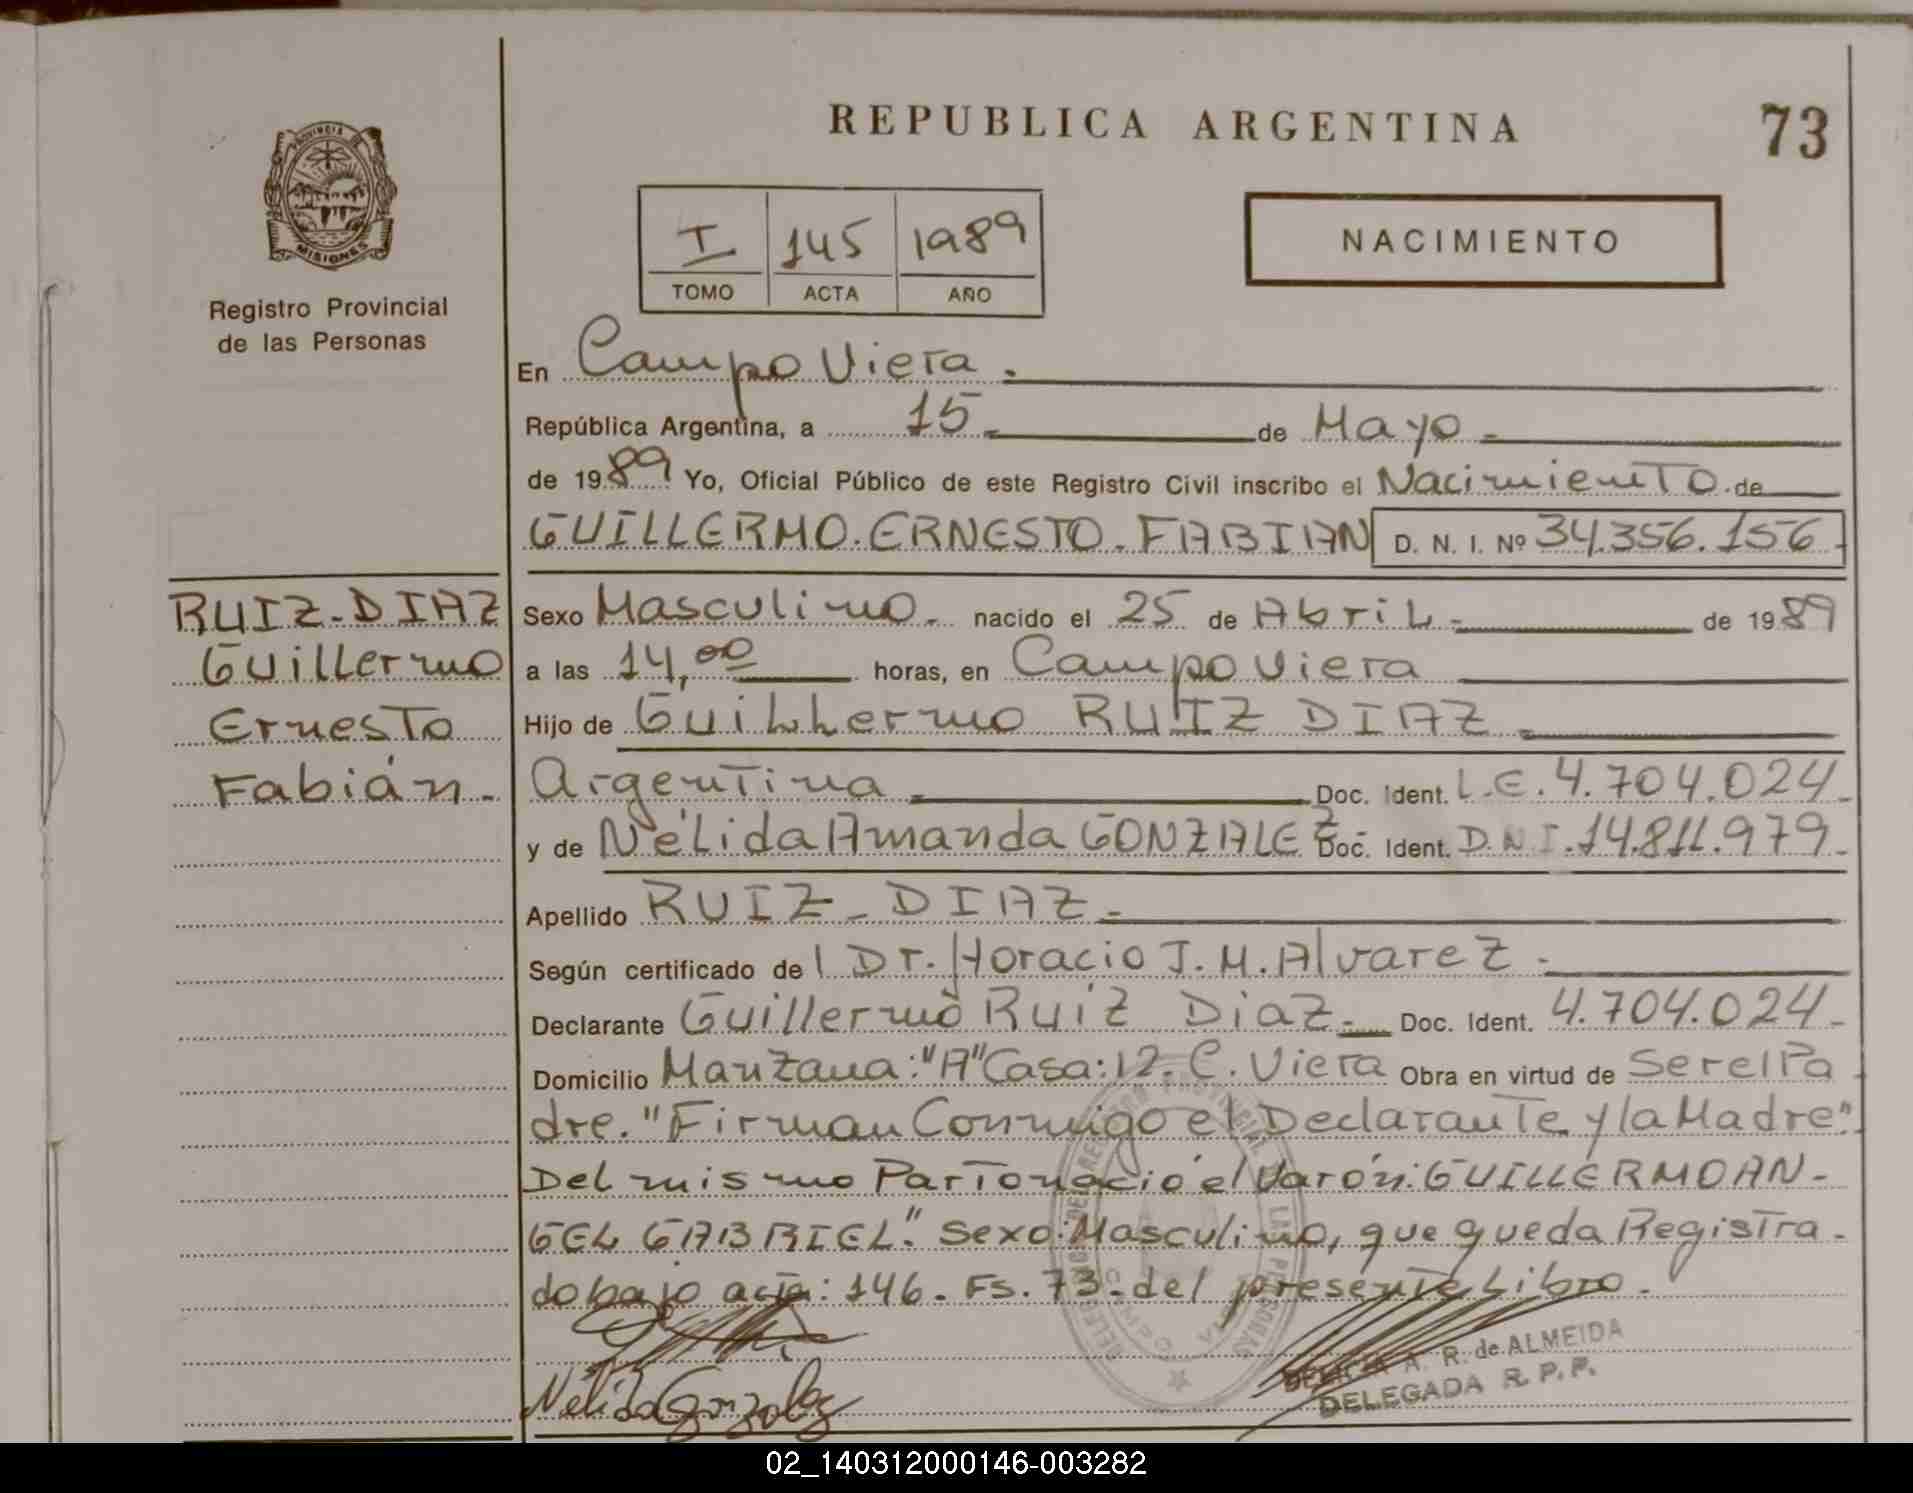 REPUBLICA ARGENTINA
73
PROVINCIA DE
MISIONES
Registro Provincial
de las Personas
I 145 1989
TOMO ACTA AÑO
NACIMIENTO
En Campo Viera.
República Argentina, a 15 de Mayo
de 1989 Yo, Oficial Público de este Registro Civil inscribo el Nacimiento de
GUILLERMO.ERNESTO.FABIAN D. N. I. Nº 34.356.156
RUIZ-DIAZ
Guillermo
Ernesto
Fabián-
Sexo Masculino. nacido el 25 de Abril- de 1989
a las 14,00 horas, en Campo Viera
Hijo de Guillermo RUIZ DIAZ
Argentina Doc. Ident. L.E.4.704.024
y de Nélida Amanda GONZALEZ Doc. Ident. D.N.I.14.811.979
Apellido RUIZ-DIAZ-
Según certificado del Dr. Horacio J.M.Alvarez-
Declarante Guillermo Ruiz Diaz- Doc. Ident. 4.704.024-
Domicilio Manzana:"A"Casa:12-C.Viera Obra en virtud de Ser el Pa
dre."Firman Conmigo el Declarante y la Madre".
Del mismo Parto nació el Varón:GUILLERMO AN-
GEL GABRIEL". Sexo:Masculino, que queda Registra-
do bajo acta:146-Fs.73-del presente Libro.
Nelida Gonzalez
DELICIA A. R. de ALMEIDA
DELEGADA R. P. P.
02_140312000146-003282